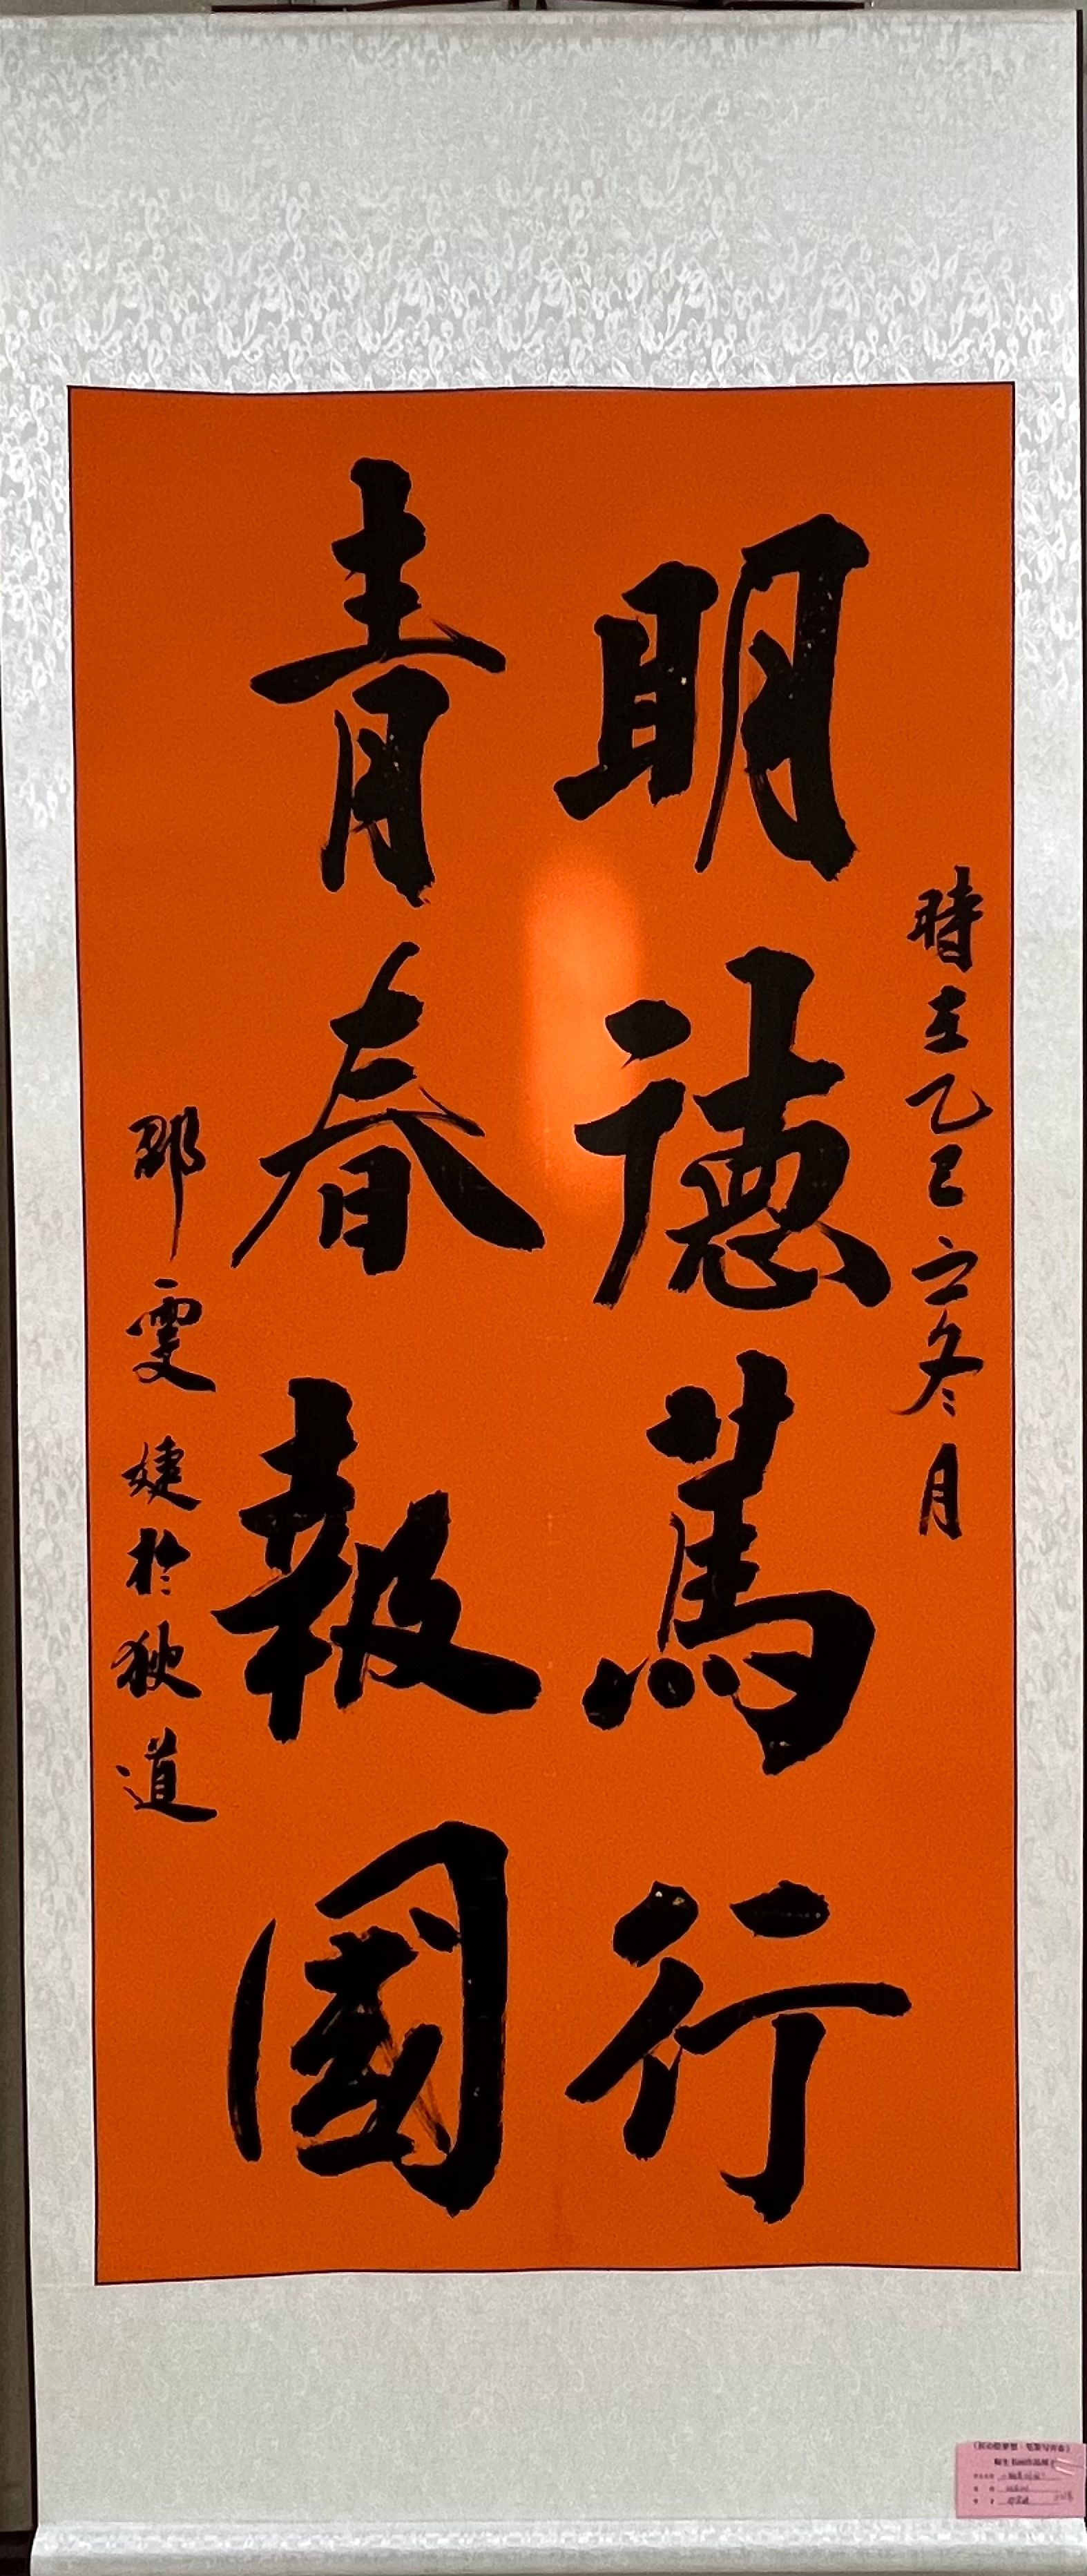 時在乙巳之冬月
明德篤行
青春報國
邵雯婕於狄道